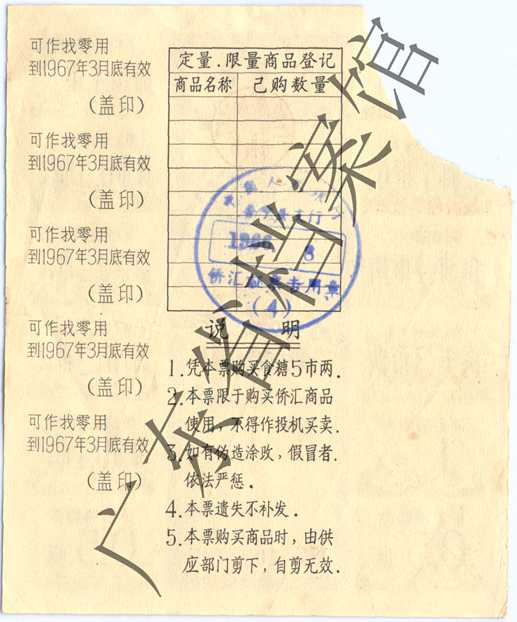 可作找零用
到1967年3月底有效
(盖印)
可作找零用
到1967年3月底有效
(盖印)
可作找零用
到1967年3月底有效
(盖印)
可作找零用
到1967年3月底有效
(盖印)
可作找零用
到1967年3月底有效
(盖印)
定量.限量商品登记
商品名称 已购数量
侨汇证票专用章
(4)
说 明
1.凭本票购买食糖5市两.
2.本票限于购买侨汇商品
使用,不得作投机买卖.
3.如有伪造涂改,假冒者.
依法严惩.
4.本票遗失不补发.
5.本票购买商品时,由供
应部门剪下,自剪无效.
广东省档案馆